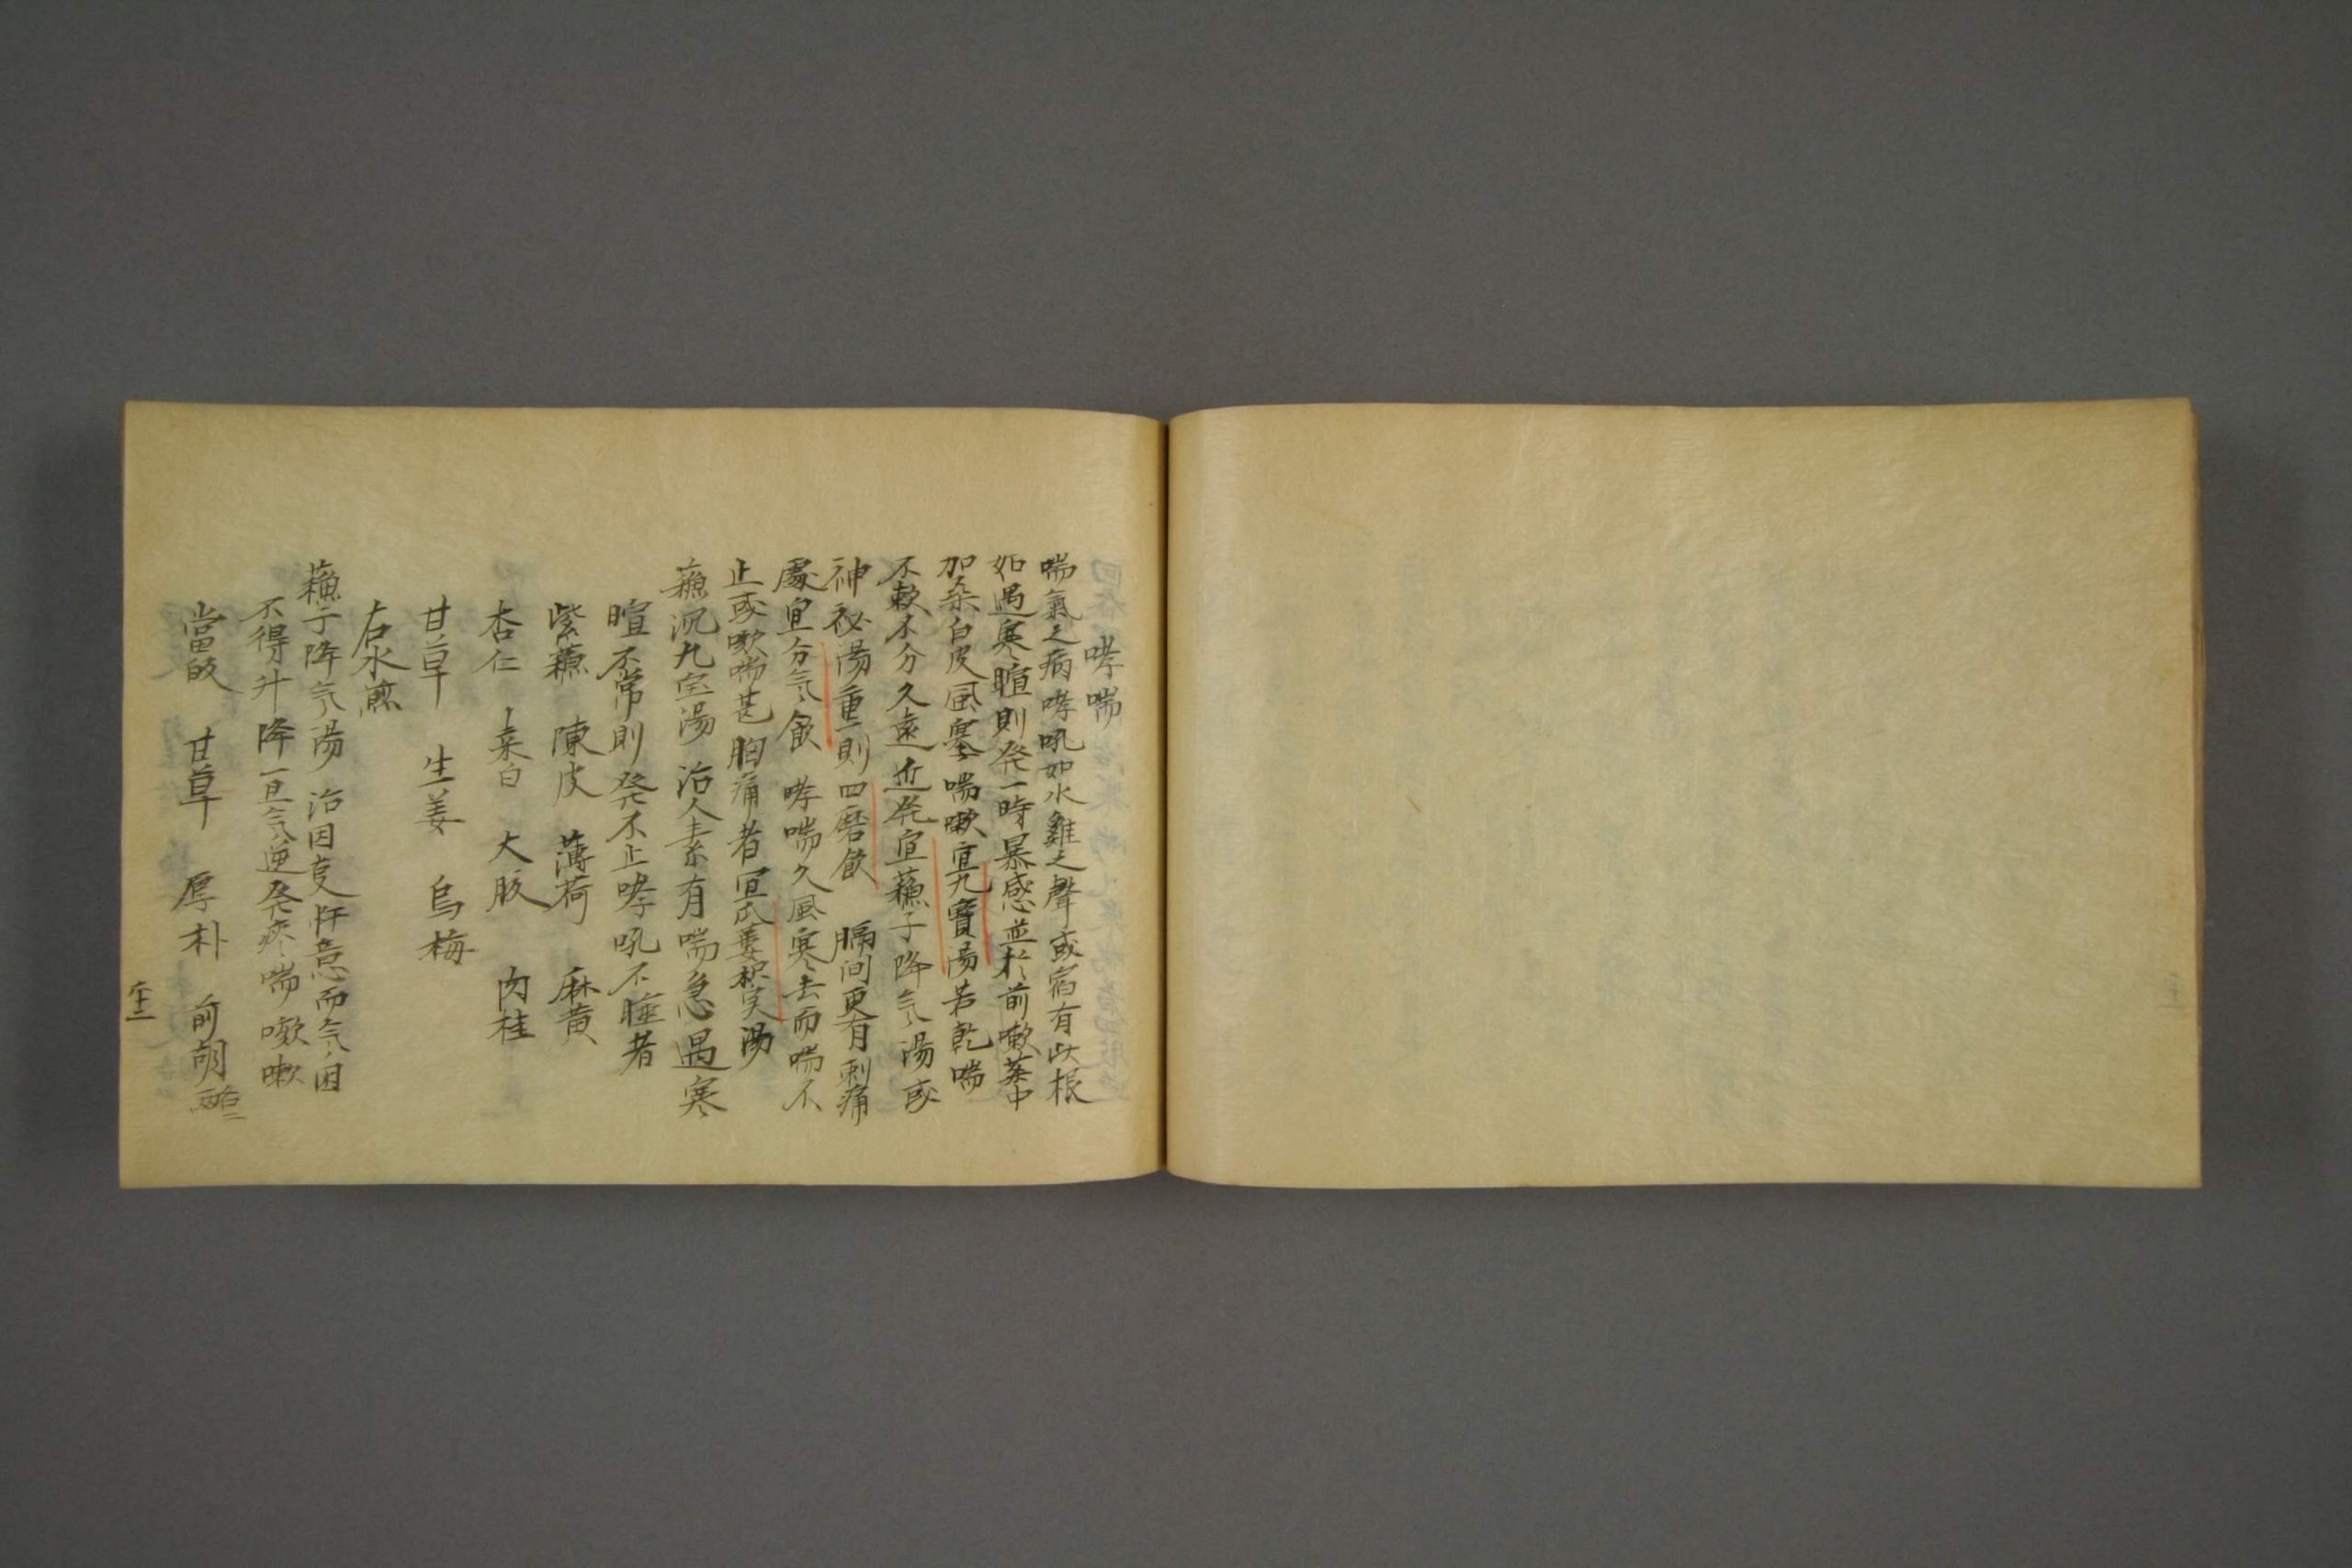 哮喘
喘氣之病哮吼如水雞之聲或宿有此根
如遇寒暄則発一時暴感並於前嗽藥中
加桑白皮風寒喘嗽宜九寶湯若乾喘
不軟不分久遠近発宜蘓子降气湯或
神祕湯重則四磨飲 膈间更有刺痛
處宜分气飲 哮喘久風寒去而喘不
止或嗽喘甚胸痛者宜瓜蔞枳実湯
蘓沉九宝湯 治人素有喘急遇寒
暄不常則発不止哮吼不睡者
紫蘓 陳皮 薄荷 麻黄
杏仁 桑白 大腹 肉桂
甘草 生姜 烏梅
右水煎
蘓子降气湯 治因忿意而气困
不得升降一旦气逆発痰喘嗽嗽
當皈 甘草 厚朴 前胡